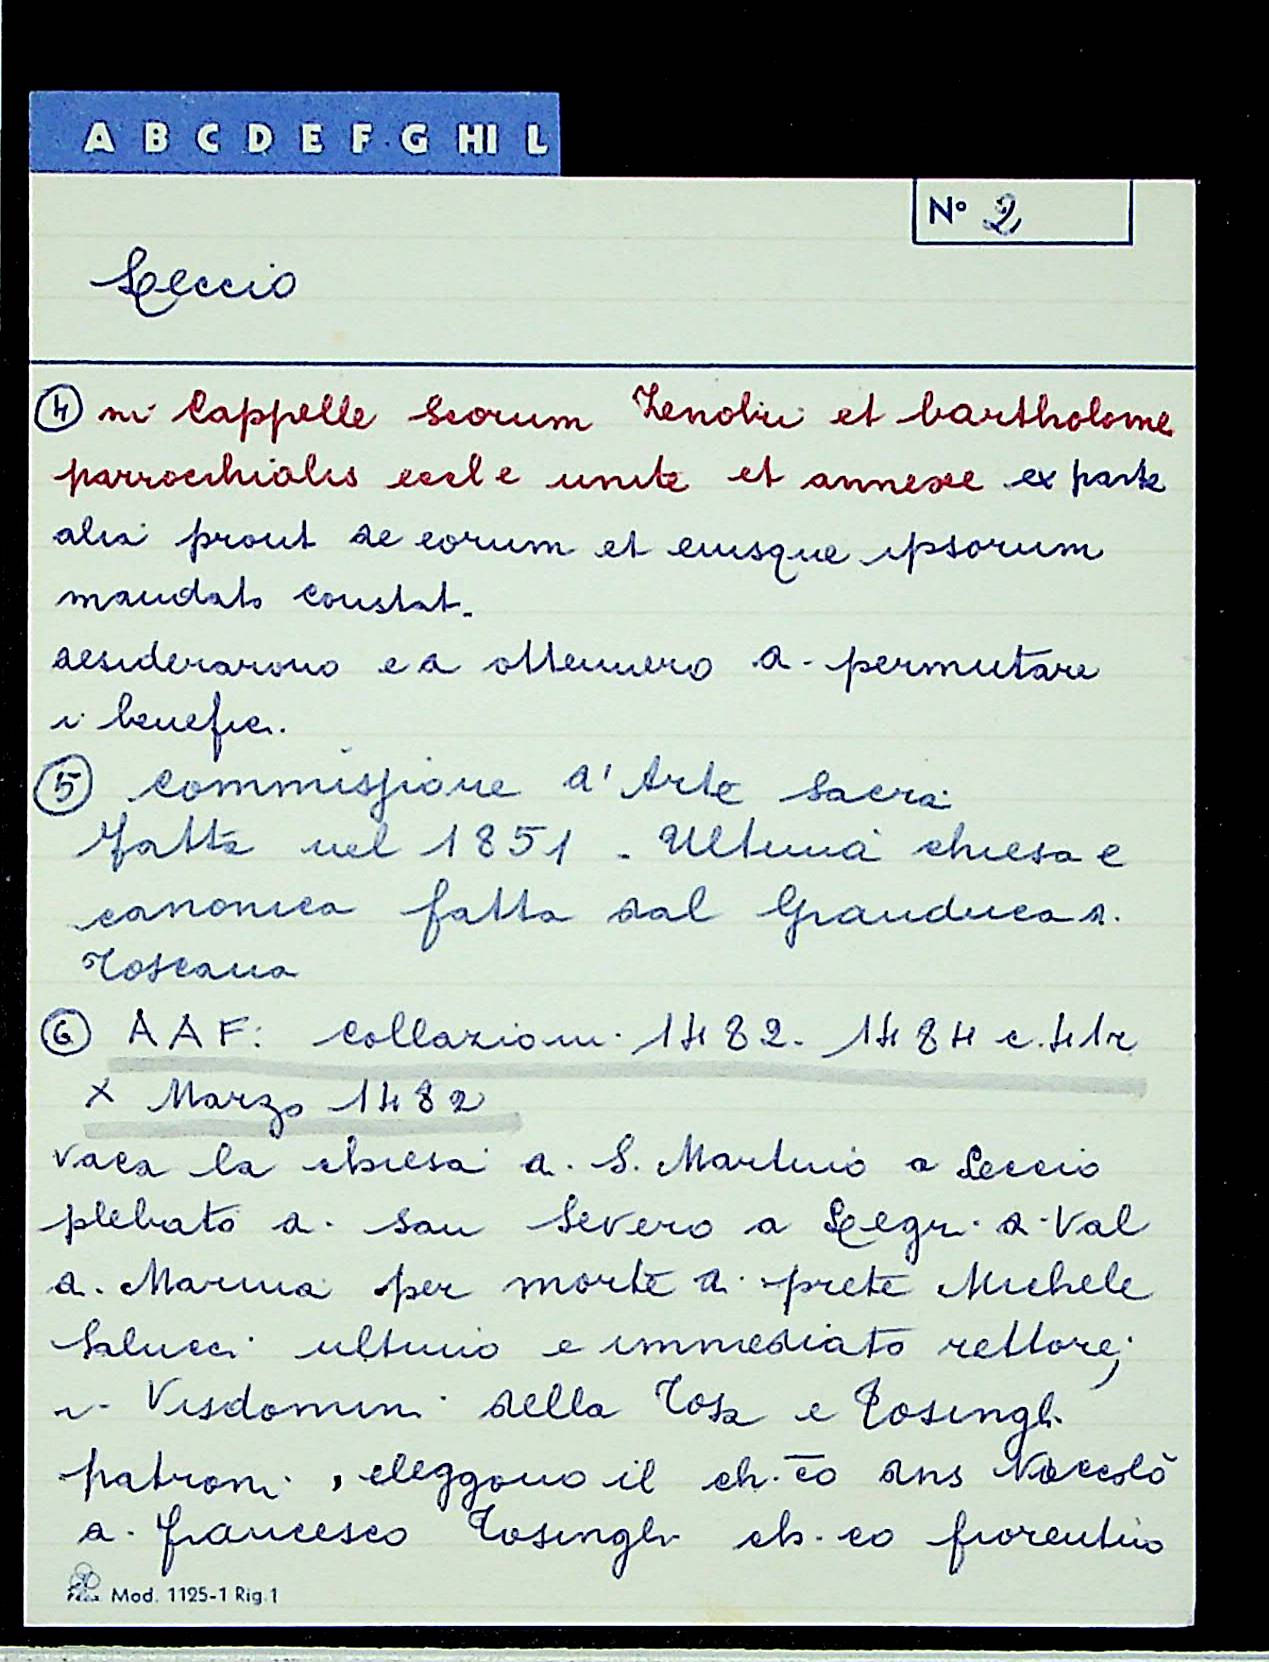 A B C D E F G HI L
Nº 2
Leccio
④ in Cappelle Scorum Zenobii et bartholome
parrochialis eccl e unite et annexe ex parte
alia prout de eorum et cuiusque ipsorum
mandato constat.
desiderarono e d ottennero di permutare
i benefici.
⑤ Commissione d'Arte Sacra
fatta nel 1851. Ultima chiesa e
canonica fatta dal Granduca d.
Toscana
⑥ AAF: Collazioni 1482-1484 c.41r
X Marzo 1482
vaca la chiesa di S. Martino a Leccio
plebato di San Severo a Legri di Val
di Marina per morte di prete Michele
Salucci ultimo e immediato rettore;
i Visdomini della Tosa e Tosinghi
patroni, eleggono il ch.co dns Niccolò
di Francesco Tosinghi ch.co fiorentino
Mod. 1125-1 Rig.1